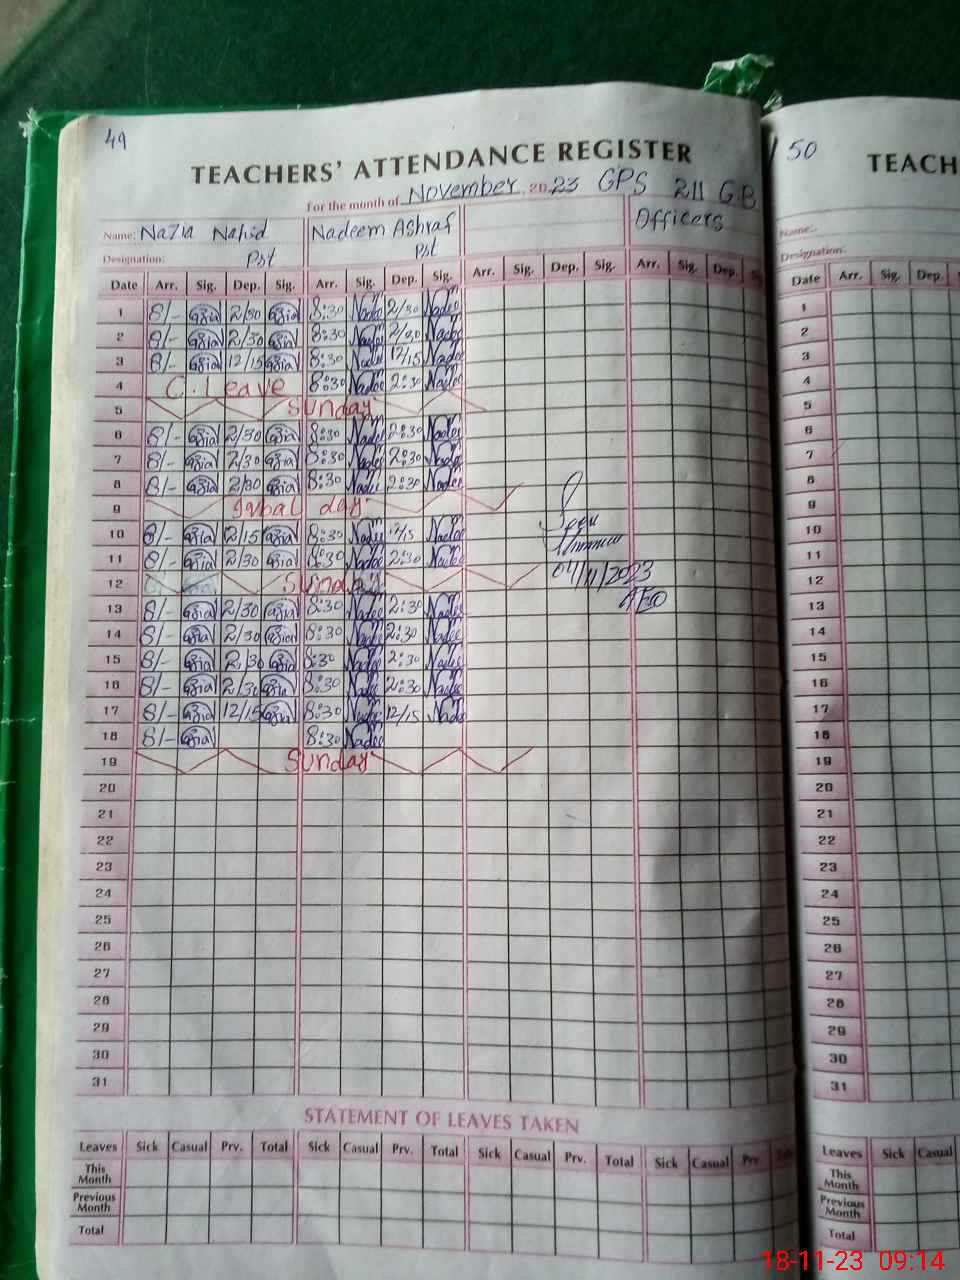 49
TEACHERS' ATTENDANCE REGISTER
For the month of November 2023 GPS 211 G.B
Name: Nazia Nahid Nadeem Ashraf Officers
Designation: Pst Pst
Date Arr. Sig. Dep. Sig. Arr. Sig. Dep. Sig. Arr. Sig. Dep. Sig. Arr. Sig. Dep.
1 8/- 2/30 8:30 Nadee 2/30 Nadee
2 8/- 2/30 8:30 Nadee Nadee
3 8/- 12/15 8:30 Nadee 12/15 Nadee
4 C. Leave 8:30 Nadee 2:30 Nadee
5 Sunday
6 8/- 2/30 8:30 Nadee 2:30 Nadee
7 8/- 2/30 8:30 Nadee 2:30 Nadee
8 8/- 2/30 8:30 Nadee 2:30 Nadee
9 Iqbal day
10 8/- 8:30 Nadee 12/15 Nadee
11 8/- 2/30 8:30 Nadee 2:30 Nadee
12 Sunday
04/11/2023
AEO
13 8/- 2/30 8:30 Nadee 2:30 Nadee
14 8/- 2/30 8:30 Nadee 2:30 Nadee
15 8/- 2/30 8:30 Nadee 2:30 Nadee
16 8/- 2/30 8:30 Nadee 2:30 Nadee
17 8/- 12/15 8:30 Nadee 12/15 Nadee
18 8/- 8:30 Nadee
19 Sunday
20
21
22
23
24
25
26
27
28
29
30
31
STATEMENT OF LEAVES TAKEN
Leaves Sick Casual Prv. Total Sick Casual Prv. Total Sick Casual Prv. Total Sick Casual Prv.
This Month
Previous Month
Total
50
TEACH
Name:
Designation:
Date Arr. Sig. Dep.
1
2
3
4
5
6
7
8
9
10
11
12
13
14
15
16
17
18
19
20
21
22
23
24
25
26
27
28
29
30
31
Leaves Sick Casual
This Month
Previous Month
Total
18-11-23 09:14